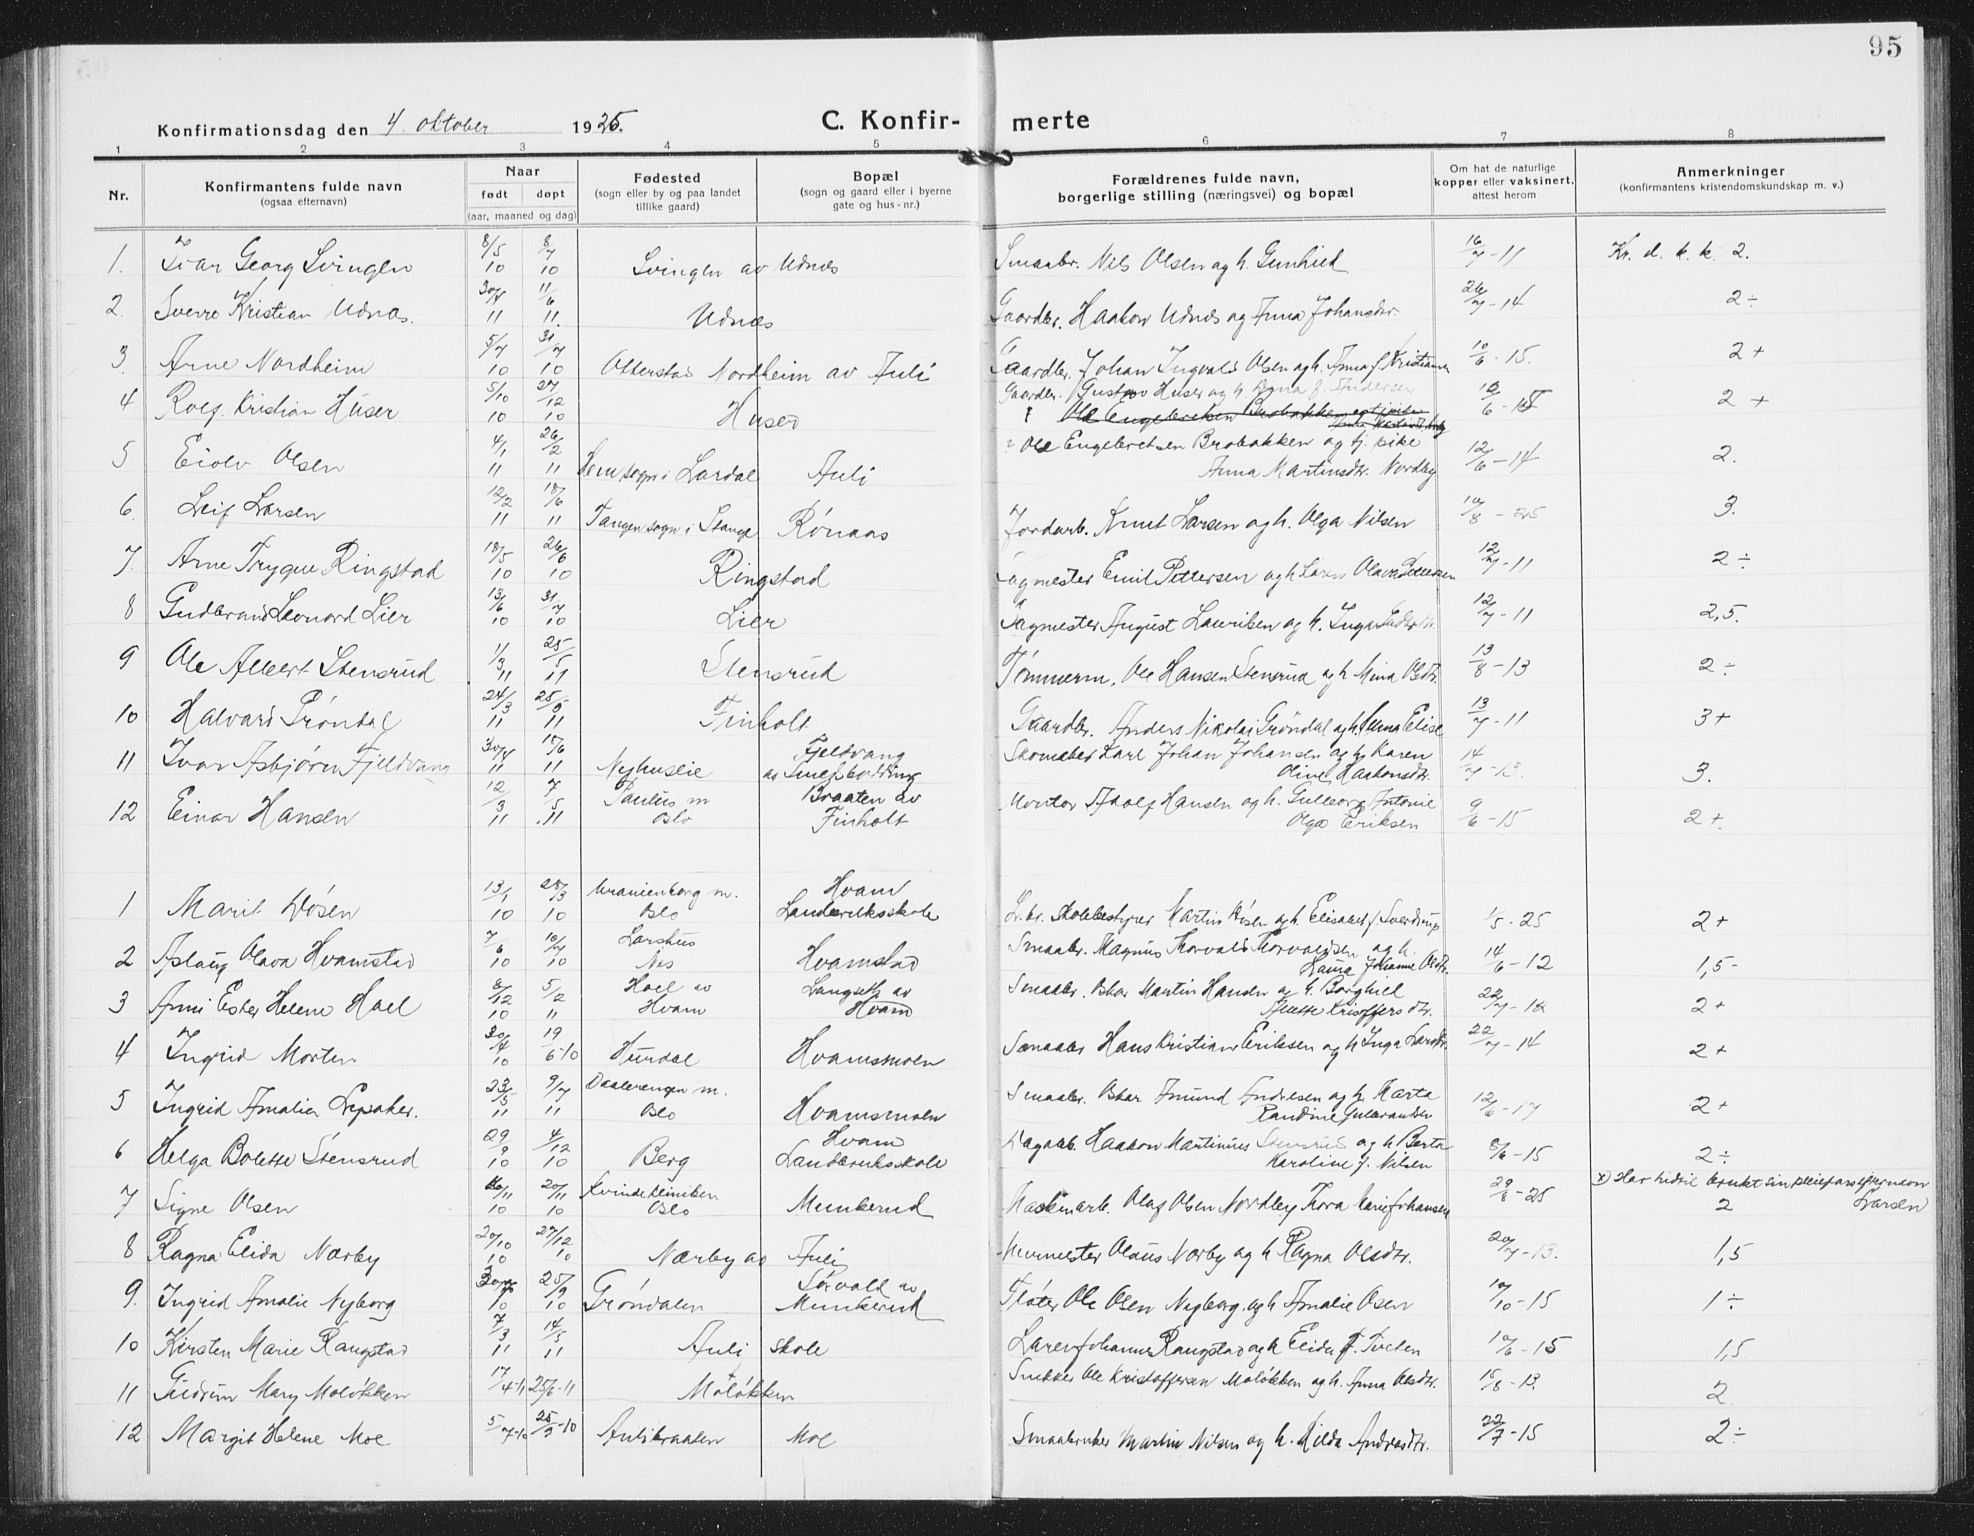 95
Konfirmationsdag den 4. oktober 1925.
C. Konfirmerte
1 2 3 4 5 6 7 8
Nr.
Konfirmantens fulde navn
(ogsaa efternavn)
Naar
født døpt
(aar, maaned og dag)
Fødested
(sogn eller by og paa landet
tillike gaard)
Bopæl
(sogn og gaard eller i byerne
gate og hus-nr.)
Forældrenes fulde navn,
borgerlige stilling (næringsvei) og bopæl
Om hat de naturlige
kopper eller vaksinert,
attest herom
Anmerkninger
(konfirmantens kristendomskundskap m. v.)
1. Ivar Georg Svingen 8/5 10 8/7 10 Svingen av Udnæs Smaabr. Nils Olsen og h. Gunhild 16/7-11 Kr. d. k. k. 2.
2. Sverre Kristian Udnæs. 30/4 11 11/6 11. Udnæs Gaardbr. Haakon Udnæs og Anna Johansdtr. 26/7-14 2÷
3. Arne Nordheim 5/7 10 31/7 10 Otterstad Nordheim av Auli Gaardbr. Johan Ingvald Olsen og h. Anna f. Kristiansen 10/6-15. 2+
4 Rolf Kristian Huser 5/10 10 27/12 10 Huser Gaardbr. Gustav Huser og h. f. Andersen 2+
Ole Engebretsen Brobakken og
5 Eiolv Olsen 4/1 11 26/2 11 Sem sogn i Lardal Auli Ole Engebretsen Brobakken og tj. pike
Anna Martinsdtr. Nordby 12/6-14 2.
6. Leif Larsen 12/2 11 18/6 11 Tangen sogn i Stange Rønaas Jordarb. Knut Larsen og h. Olga Nilsen 3.
7. Arne Trygve Ringstad 18/5 10 26/6 10 Ringstad Sagmester Emil Pettersen og h. Laura Olava Pettersen 12/7-11 2÷
8 Gudbrand Leonard Lier 13/6 10 31/7 10 Lier Sagmester August Lauritsen og h. Inga 12/7-11 2,5.
9 Ole Albert Stensrud 1/3 11 25/5 11 Stensrud Tømmerm. Ole Hansen Stensrud og h. Mina Olsdtr. 13/8-13 2÷
10 Halvard Grøndal 24/3 11 25/5 11 Finholt Gaardbr. Anders Nikolai Grøndal og h. Anna Elise 13/7-11 3+
11 Ivar Asbjørn Fjeldvang 30/4 11 18/6 11 Nyhuslie Fjeldvang
av Skomaker Karl Johan Johansen og h. Karen
Oline Haakonsdtr. 14/7-13. 3.
12 Einar Hansen 12/3 11 7/5 11 Paulus m
Oslo Braaten av
Finholt Montør Adolf Hansen og h. Gulborg Antonie
Olga Eriksen 9/6-15 2+.
1 Marit Døsen 13/1 10 28/3 10 Uranienborg m.
Oslo Hvam
Landbruksskole Skolebestyrer Martin Døsen og h. Elisabet f. Sverdrup 1/5-25 2+
2 Aslaug Olava Hvamstad 7/6 10 10/7 10 Larshus
Nes Hvamstad Smaabr. Magnus Thorvald Thorvaldsen og h.
Laura Johanne Olsdtr. 14/6-12 1,5-
3 Anni Ester Helene Hoel 8/12 10 5/2 11 Hoel av
Hvam Langseth av
Hvam Smaabr. Oskar Martin Hansen og h. Borghild
Alette Kristoffersdtr. 22/7-12 2+
4 Ingrid Morten 30/4 10 19/6-10 Hurdal Hvamsmoen Smaabr. Hans Kristian Eriksen og h. Inga Larsdtr. 22/7-14 2+
5 Ingrid Amalie Lysaker. 23/5 11 9/7 11 Vaalerengen m.
Oslo Hvamsmoen Smaabr. Oskar Amund Andresen og h. Marta
Randine Gulbrandsen 12/6-17 2+
6 Helga Bolette Stensrud 29/9 10 4/12 10 Berg Hvam
Landbruksskole Dagarb. Haakon Martinius Stensrud og h. Berta
Karoline f. Nilsen 8/6-15 2÷
7 Signe Olsen 10 20/11 10 Kvindeklinikken
Oslo Munkerud Maskinarb. Olaf Olsen Nordby, Thora Marie Johansen 29/6-25 x) Har hidtil brukt sin pleiefars efternavn
2 Larsen
8 Ragna Elida Nærby 20/10 10 27/12 10 Nærby av Auli Murmester Olaus Nærby og h. Ragna Olsdtr. 20/7-13. 1,5
9. Ingrid Amalie Nyborg 10 25/9 10 Grøndalen Sørvald av
Munkerud Fløter Ole Olsen Nyborg og h. Amalie Olsen 10/10-15 1÷
10 Kirsten Marie Rangstad 7/3 11 14/5 11 Auli skole Lærer Johannes Rangstad og h. Elida f. Tveten 10/6-15 1,5
11 Gudrun Mary Moløkken 17/4-11 25/6-11 Moløkken Snekker Ole Kristoffersen Moløkken og h. Anna Olsdtr. 15/8-13. 2
12 Margit Helene Moe 5/7-10 25/9-10 Aulibraaten Moe Smaabruker Martin Nilsen og h. Hilda Andreasdtr. 22/7-15 2÷